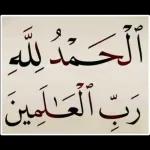 اَلْحَمْدُ لِلَّهِ
رَبِّ الْعَالَمِينَ